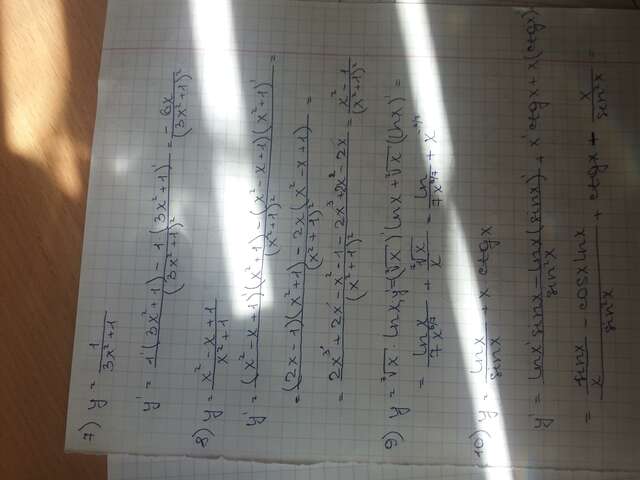 7) y = 1/(3x²+1)
y' = (1'(3x²+1) - 1(3x²+1)')/(3x²+1)² = - 6x/(3x²+1)²
8) y = (x²-x+1)/(x²+1)
y' = ((x²-x+1)'(x²+1) - (x²-x+1)(x²+1)')/(x²+1)² =
= ((2x-1)(x²+1) - 2x(x²-x+1))/(x²+1)² =
= (2x³+2x-x²-1-2x³+2x²-2x)/(x²+1)² = (x²-1)/(x²+1)²
9) y = ⁷√x · lnx, y' = (⁷√x)' lnx + ⁷√x (lnx)' =
= lnx/(7x^(6/7)) + ⁷√x/x = lnx/(7x^(6/7)) + x
10) y = lnx/sinx + x ctgx
y' = (lnx' sinx - lnx(sinx)')/sin²x + x' ctgx + x(ctgx)
= (sinx/x - cosx lnx)/sin²x + ctgx + x/sin²x =